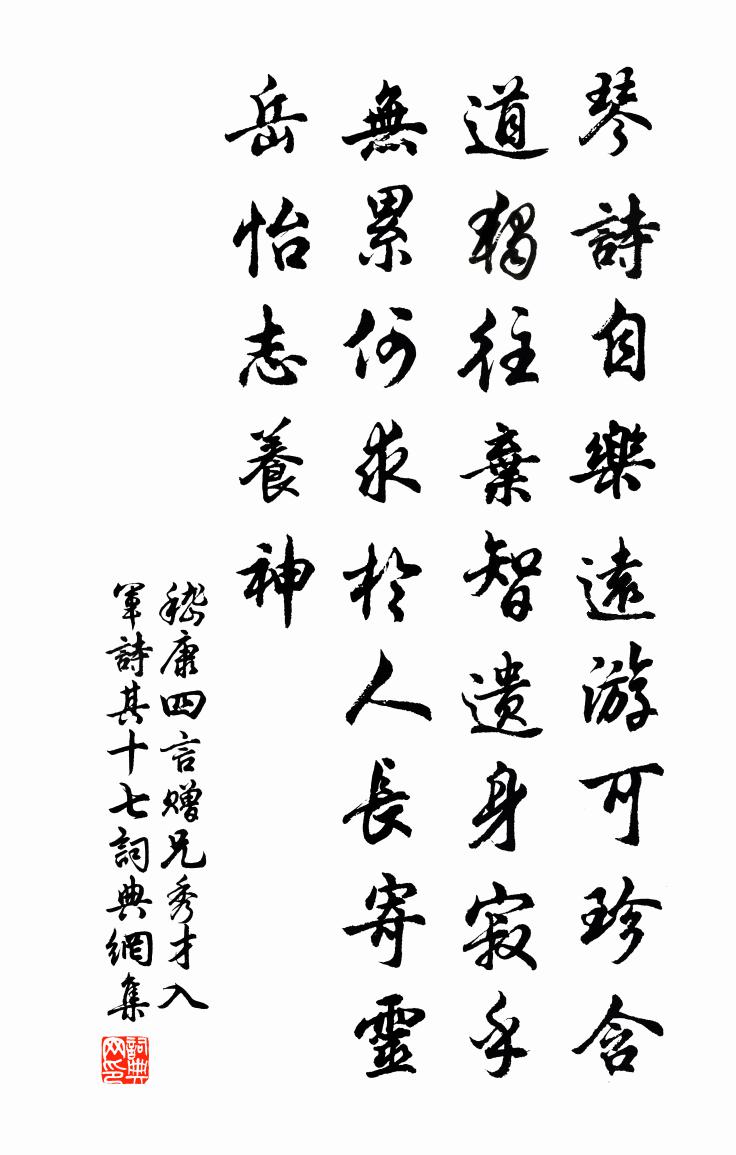 琴詩自樂遠游可珍含
道獨往棄智遺身寂乎
無累何求於人長寄靈
岳怡志養神
嵇康四言贈兄秀才入
軍詩其十七詞典網集
詞典网印